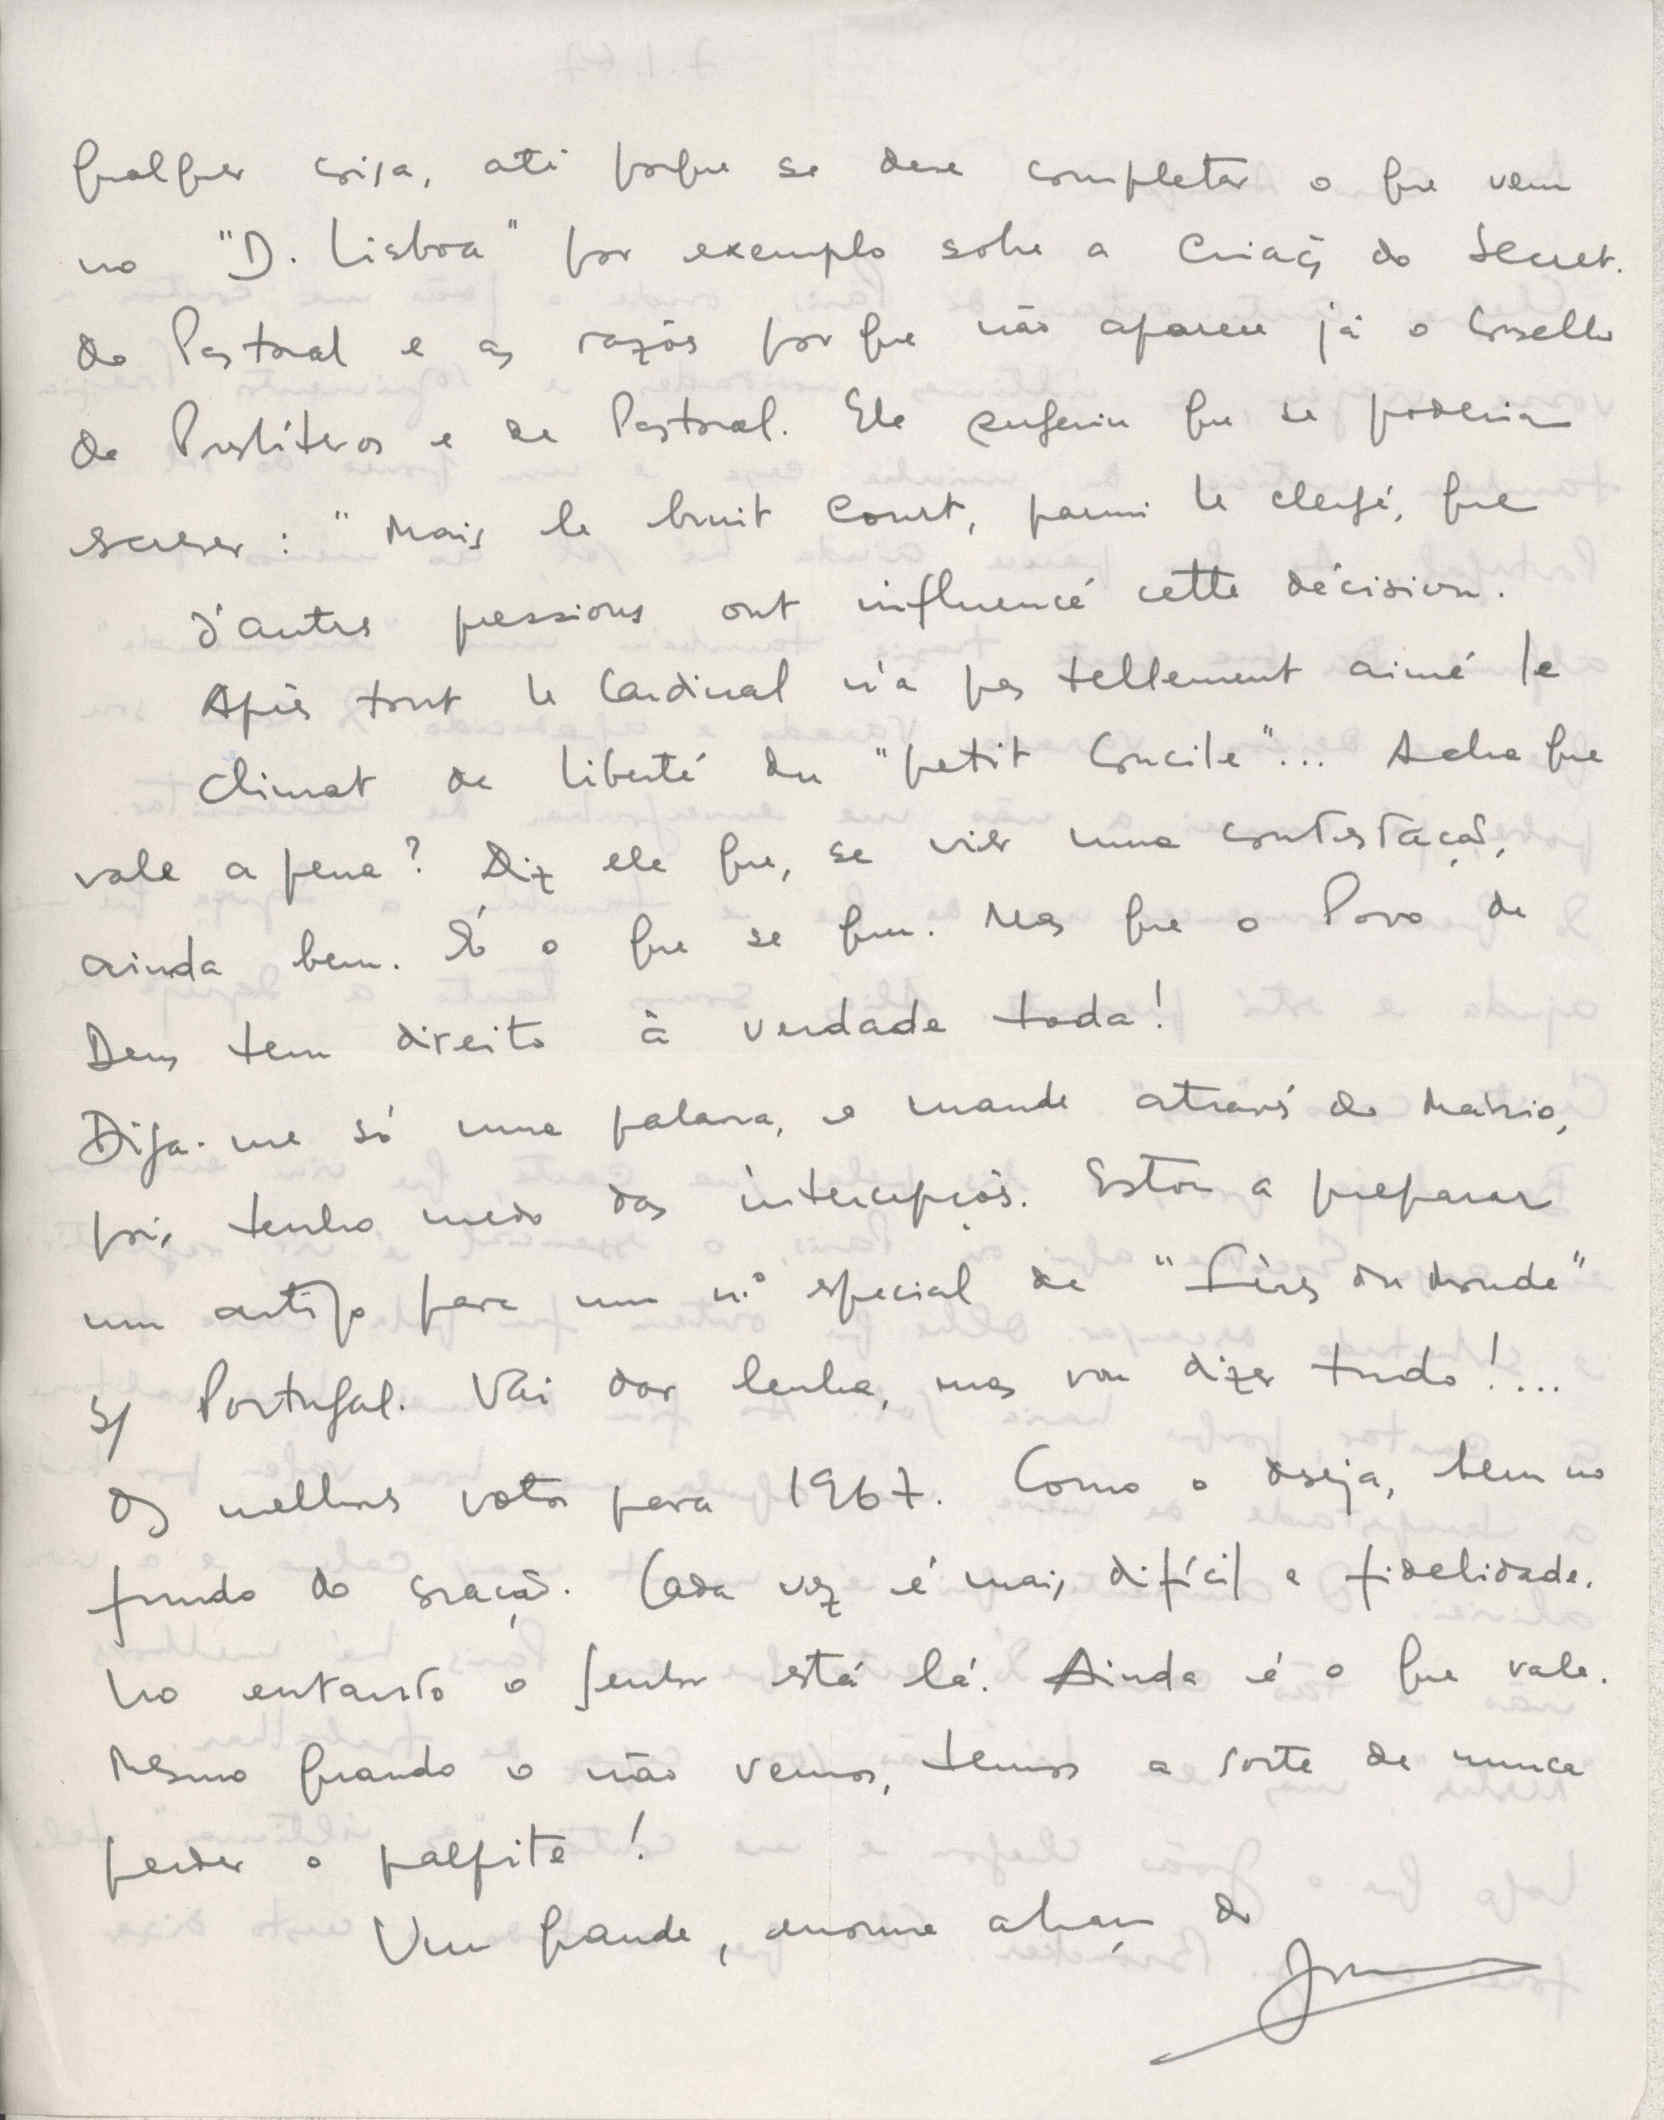 qualquer coisa, até porque se deve completar o que vem
no "D. Lisboa" por exemplo sobre a criação do Secret.
do Pastoral e as razões por que não aparece já o Conselho
de Presbíteros e de Pastoral. Ele sugeriu que se poderia
escrever: "Mais le bruit court, parmi le clergé, que
d'autres pressions ont influencé cette décision.
Après tout le Cardinal n'a pas tellement aimé le
climat de liberté du "petit Concile"... Acha que
vale a pena? Diz ele que, se vier uma contestação,
ainda bem. É o que se quer. Mas que o Povo de
Deus tem direito à verdade toda!
Diga-me só uma palavra, e mande através do Mário,
pois tenho medo das intercepções. Estou a preparar
um artigo para um n.º especial de "Frères du Monde"
s/ Portugal. Vai dar lenha, mas vou dizer tudo!...
Os melhores votos para 1967. Como o deseja, bem no
fundo do coração. Cada vez é mais difícil a fidelidade.
No entanto o Senhor está lá. Ainda é o que vale.
Mesmo quando o não vemos, temos a sorte de nunca
perder o palpite!
Um grande, enorme abraço do